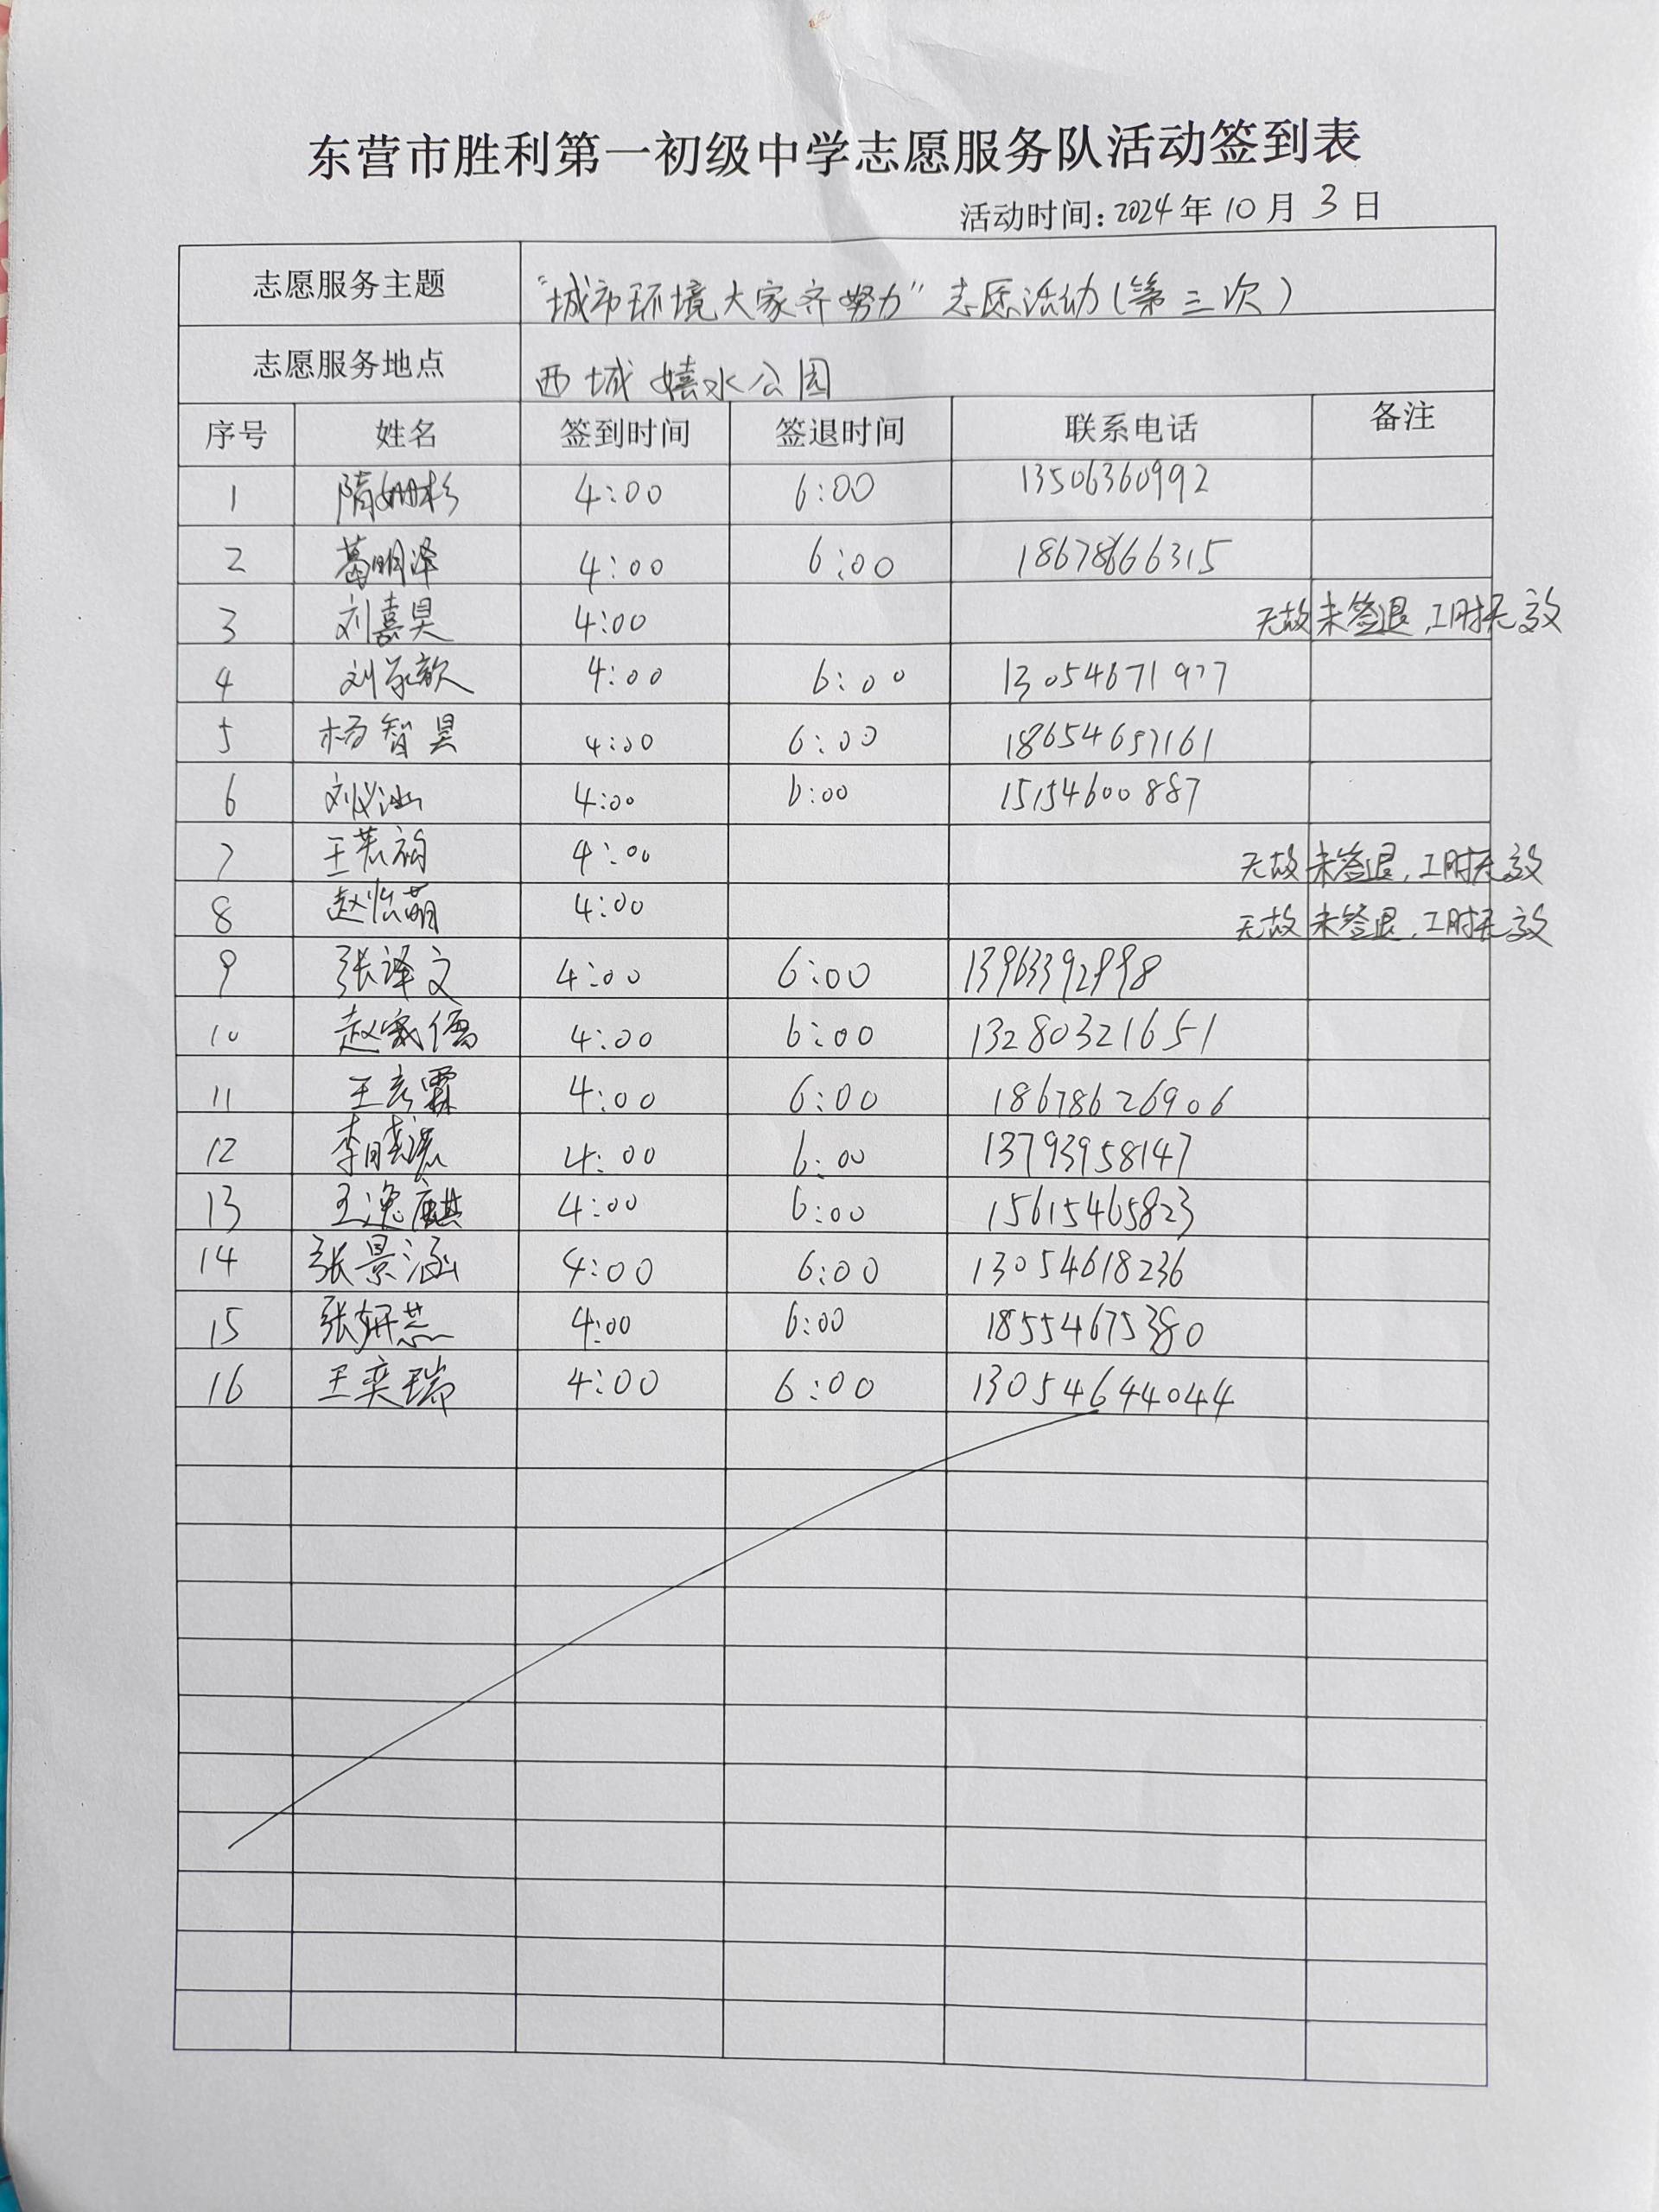 东营市胜利第一初级中学志愿服务队活动签到表
活动时间：2024年10月3日
志愿服务主题 “城市环境大家齐努力”志愿活动（第三次）
志愿服务地点 西城嬉水公园
序号 姓名 签到时间 签退时间 联系电话 备注
1 隋姗杉 4:00 6:00 13506360992
2 葛明泽 4:00 6:00 18678666315
3 刘嘉昊 4:00 无故未签退，工时无效
4 4:00 6:00 13054671977
5 杨智昊 4:00 6:00 18654657161
6 4:00 6:00 15154600887
7 4:00 无故未签退，工时无效
8 赵怡萌 4:00 无故未签退，工时无效
9 张译文 4:00 6:00 13963392998
10 4:00 6:00 13280321651
11 王彦霖 4:00 6:00 18678626906
12 4:00 6:00 13793958147
13 王逸麒 4:00 6:00 15615465823
14 张景涵 4:00 6:00 13054618236
15 张妍蕊 4:00 6:00 18554675380
16 王奕瑞 4:00 6:00 13054644044